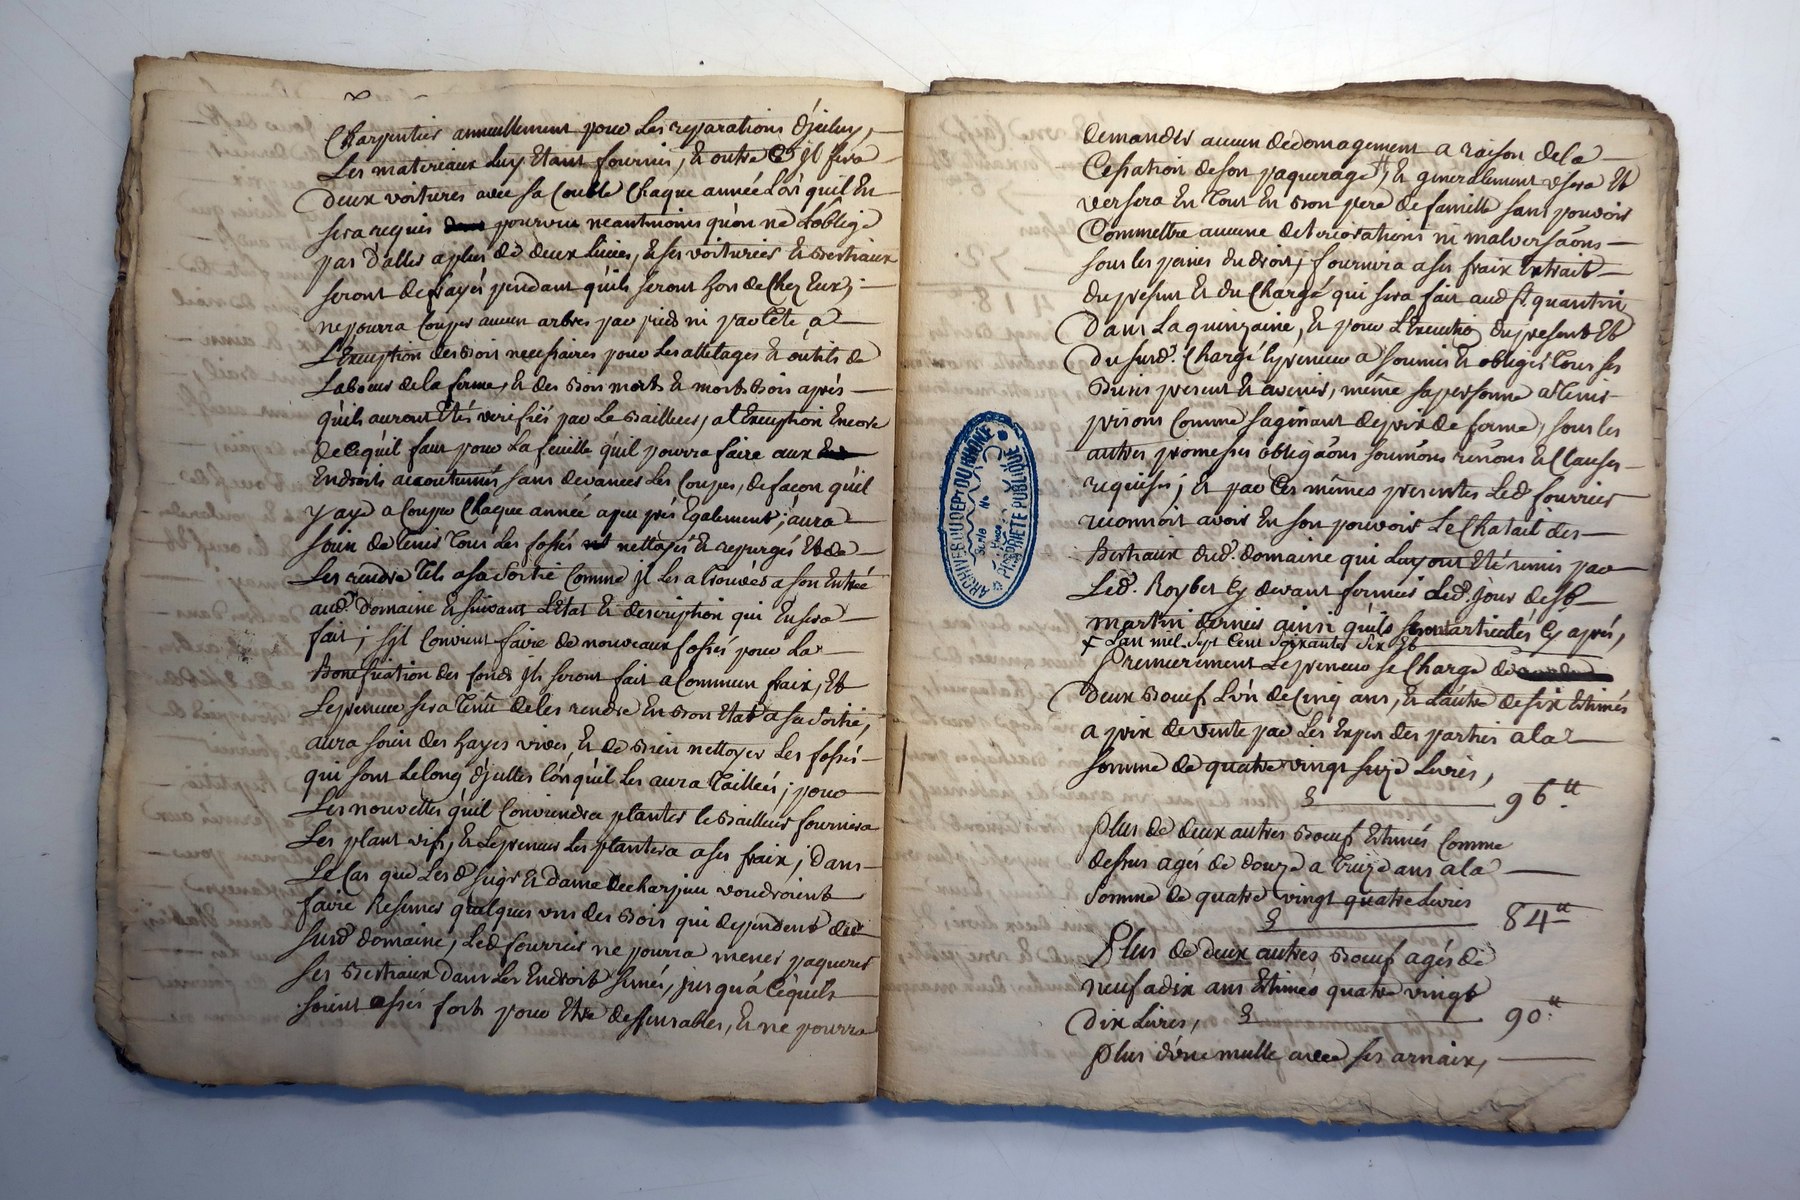 Charpentier annuellement pour Les reparations d'jceluy,
Les materiaux luy Etant fournis, & outre Ce jl fera
deux voitures avec sa Couble Chaque année Lors quil En
sera requis pourvu neantmoins qu'on ne L'oblige
pas d'aller a plus de deux Lieües, & ses voituriers & Bestiaux
seront defrayés pendant qu'ils seront hors de Chez Eux;
ne pourra Couper aucun arbres par pied ni par Tête, a
L'Exception des Bois necessaires pour Les attelages & outils de
Labour de la ferme, & des Bois morts & mort Bois après
qu'ils auront Etés verifiés par Le Bailleur, a l'Exception Encore
de Ce qu'il faut pour La feuille qu'il pourra faire aux
Endroits accoutumés sans devancer Les Coupes, de façon qu'il
y aye a Couper Chaque année a peu près Egalement; aura
soin de Tenir Tous Les fossés nettoyés & repurgés Et de
Les rendre Tels a sa sortie Comme jl Les a Trouvés a son Entrée
aud. Domaine & suivant L'Etat & description qui En sera
fait; s'jl Convient faire de nouveaux fossés pour La
Bonification des fonds jls seront fait a Commun fraix, Et
Le preneur sera Tenu de les rendre En Bon Etat a sa sortie,
aura soin des hayes vives, & de Bien nettoyer Les fossés
qui sont Le long d'jcelles lors qu'il Les aura Taillées; pour
Les nouvelles qu'il Conviendra planter le Bailleur fournira
Les plant vifs, & Le preneur Les plantera a ses fraix; Dans
Le Cas que Lesd. Seigr & dame voudroient
faire Reserver quelques uns des Bois qui dependent du
susd. domaine, Led. fourrier ne pourra mener paquerer
ses Bestiaux dans Les Endroit semés, jusqu'à Cequils
soient assés forts pour Etre deffensables, & ne pourra
demander aucun dedomagement a raison de la
Cessation de son paquerage, & generalement usera Et
versera En Tout En Bon pere de famille sans pouvoir
Commettre aucune deteriorations ni malversãons
sous les peines du droit; fournira a ses fraix Extrait
du present & du Chargé qui sera fait aud. St. quantin
Dans La quinzaine, & pour L'Execution du present Et
du susd. Chargé Le preneur a soumis & obligés Tous ses
Biens present & avenir, même sa personne a Tenir
prisons Comme sagissant de prix de ferme, sous les
autres promesses obligãons soumõns renõns & Clauses
requises; & par Ces mêmes presentes Led. fourrier
reconnoit avoir En son pouvoir Le Chatail des
Bestiaux dud. domaine qui Luy ont Eté remis par
Led. Roybet Cy devant fermier Led. jour de St
martin dernier ainsi qu'ils sont articulés Cy après,
+ L'an mil sept Cent soixante six
Premierement Le preneur se Charge de
deux Boeuf L'un de Cinq ans, & L'autre de six Estimés
a prix de vente par Les Expers des parties a la
somme de quatre vingt seize Livres,
96.tt
Plus de deux autres Boeufs Estimés Comme
dessus agés de douze a Treize ans a la
somme de quatre vingt quatre Livres
84tt
Plus de deux autres Boeufs agés de
neuf a dix ans Estimés quatre vingt
dix Livres,
90.tt
Plus d'une mulle avec ses arnaix,
ARCHIVES DU DEPT DU RHÔNE
PROPRIÉTÉ PUBLIQUE